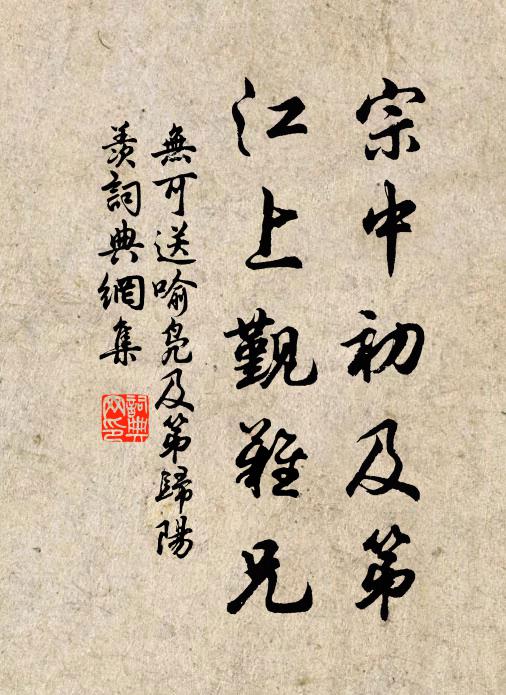 宗中初及第
江上觐難兄
無可送喻凫及第歸陽
羨詞典網集
詞典
网印